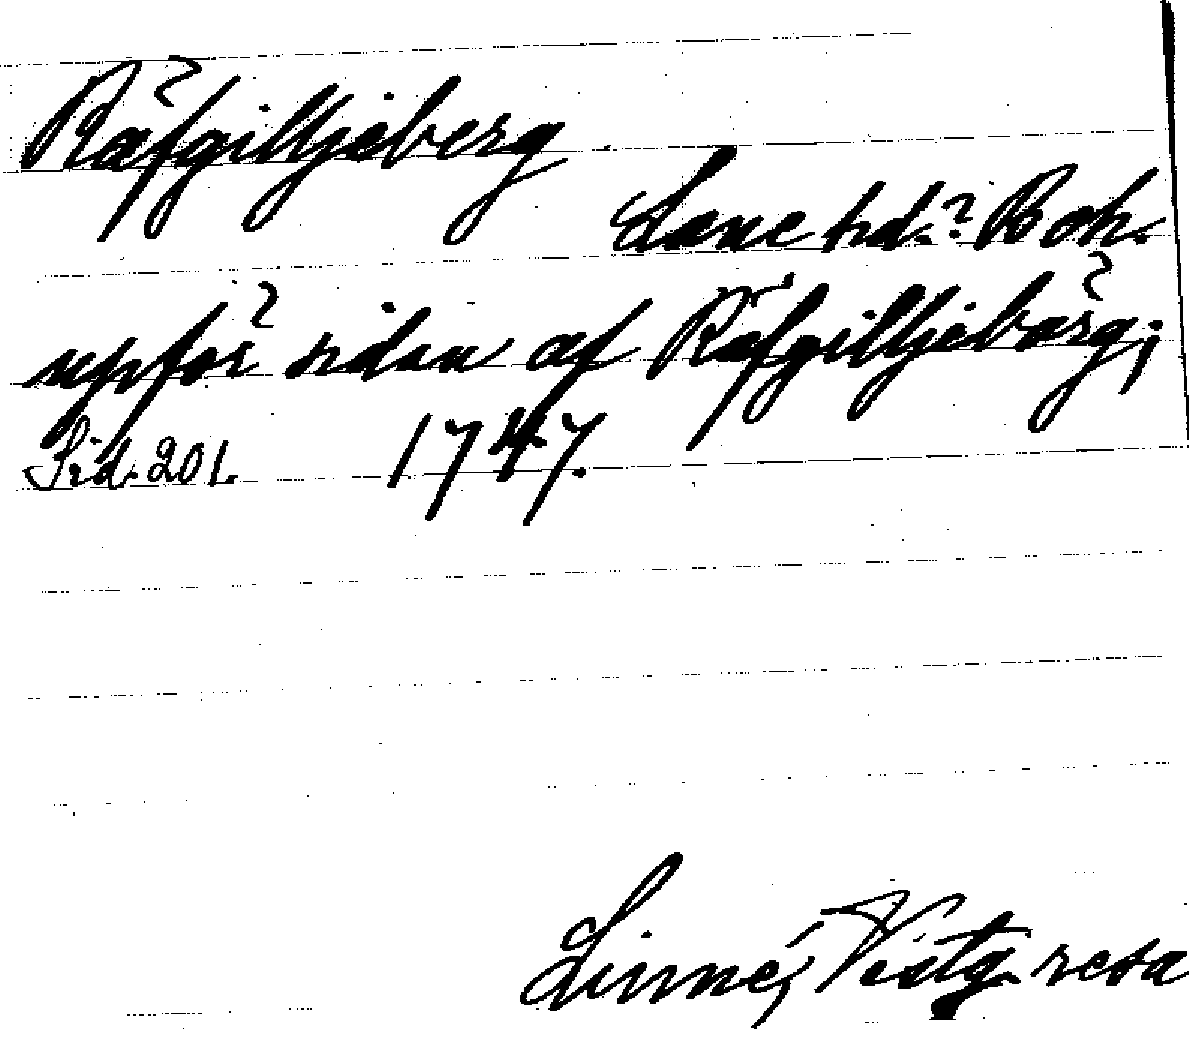 Räfgilljeberg
Lane hd.? Boh.
upför sidan af Räfgilljebärg;
Sid. 201. 1747.
Linné, Västg. resa